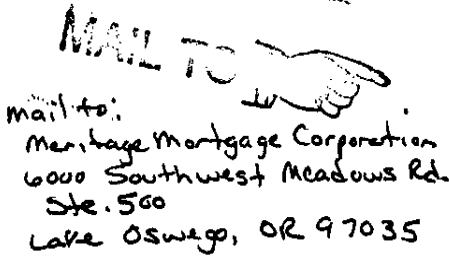 MAIL TO
mail to:
Meritage Mortgage Corporation
6000 Southwest Meadows Rd.
Ste. 500
Lake Oswego, OR 97035